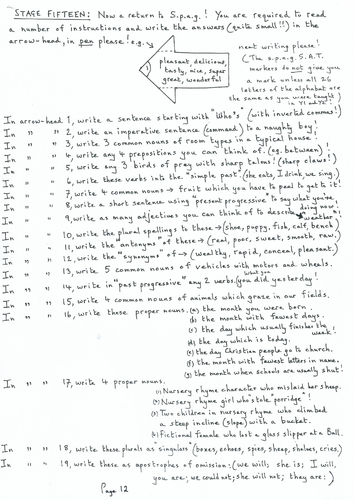 STAGE FIFTEEN: Now a return to S.p.a.g.! You are required to read
a number of instructions and write the answers (quite small!!) in the
arrow-head, in pen please! e.g.
pleasant, delicious,
tasty, nice, super
great, wonderful
nent writing please!
(The s.p.a.g. S.A.T.
markers do not give you
a mark unless all 26
letters of the alphabet are
the same as you were taught
in Y1 and Y2!)
In arrow-head 1, write a sentence starting with "Who's" (with inverted commas!)
In " " 2, write an imperative sentence (command) to a naughty boy!
In " " 3, write 3 common nouns of room types in a typical house.
In " " 4, write any 4 prepositions you can think of. (eg. between)!
In " " 5, write any 3 birds of prey with sharp talons! (sharp claws!)
In " " 6, write these verbs into the "simple past". (she eats, I drink, we sing.)
In " " 7, write 4 common nouns → fruit which you have to peel to get to it!
In " " 8, write a short sentence using "present progressive" to say what you're doing now!
In " " 9, write as many adjectives you can think of to describe weather"!
In " " 10, write the plural spellings to these → (shoe, puppy, fish, calf, bench)
In " " 11, write the "antonyms" of these → (real, poor, sweet, smooth, raw.)
In " " 12, write the "synonyms" of → (wealthy, rapid, conceal, pleasant.)
In " " 13, write 5 common nouns of vehicles with motors and wheels.
In " " 14, write in "past progressive" any 2 verbs. (what you did yesterday!
In " " 15, write 4 common nouns of animals which graze in our fields.
In " " 16, write these proper nouns. (a) the month you were born.
(b) the month with fewest days.
(c) the day which usually finishes the week!
(d) the day which is today.
(e) the day Christian people go to church.
(f) the month with fewest letters in name.
(g) the month when schools are usually shut!
In " " 17, write 4 proper nouns.
Nursery rhyme character who mislaid her sheep.
Nursery rhyme girl who stole "porridge"!
Two children in nursery rhyme who climbed
a steep incline (slope) with a bucket.
Fictional female who lost a glass slipper at a Ball.
In " " 18, write these plurals as singulars (boxes, echoes, spies, sheep, shelves, cries.)
In " " 19, write these as apostrophes of omission. (we will; she is; I will,
you are; we could not; she will not; they are:)
Page 12